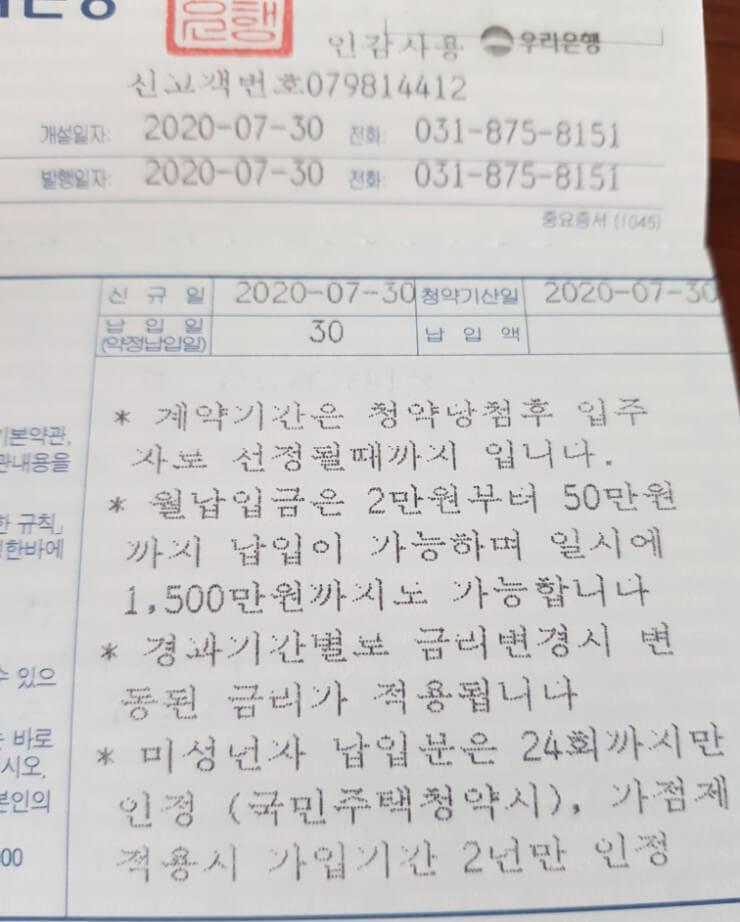 은행
인감사용 우리은행
신고객번호079814412
개설일자: 2020-07-30 전화: 031-875-8151
발행일자: 2020-07-30 전화: 031-875-8151
중요증서 (1045)
신 규 일 2020-07-30 청약기산일 2020-07-30
납 입 일 30 납 입 액
(약정납입일)
* 계약기간은 청약당첨후 입주
자로 선정될때까지 입니다.
* 월납입금은 2만원부터 50만원
까지 납입이 가능하며 일시에
1,500만원까지도 가능합니다
* 경과기간별로 금리변경시 변
동된 금리가 적용됩니다
* 미성년자 납입분은 24회까지만
인정 (국민주택청약시), 가점제
적용시 가입기간 2년만 인정
기본약관,
관내용을
한 규칙」
정한바에
수 있으
는 바로
시오.
본인의
00